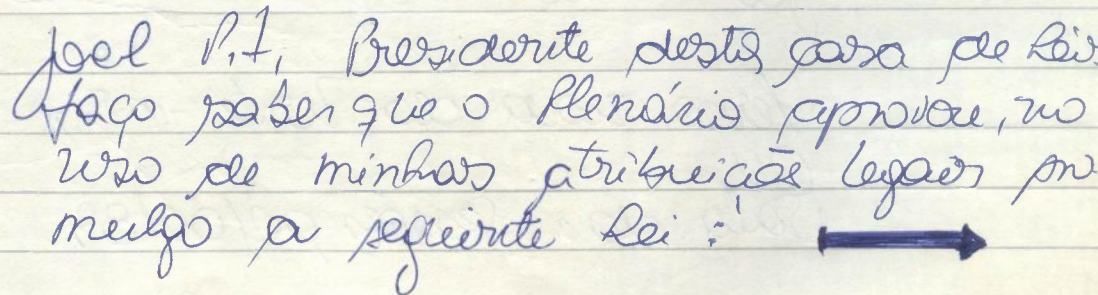 Joel P.I, Presidente desta casa de Leis
faço saber que o Plenário aprovou, no
uso de minhas atribuiçãoe legais pro
mulgo a seguinte Lei :